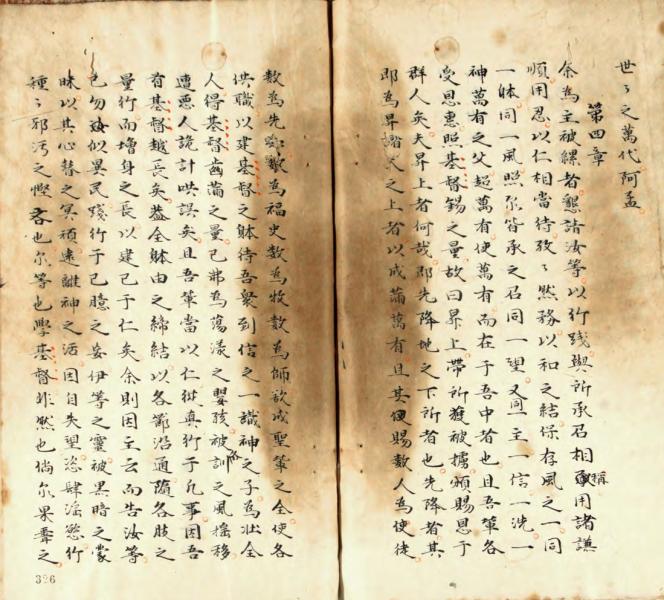 世〻之萬代阿孟
第四章
余為主被縲者懇請汝等以行踐與所承召相稱用諸謙
順用忍以仁相當待孜〻然務以和之結保存風之一同
一躰同一風照尔皆承之召同一望又同一主一信一洗一
神萬有之父超萬有使萬有而在于吾中者也且吾輩各
受恩惠照基督錫之量故曰昇上帶所獲被擄頒賜恩于
群人矣夫昇上者何哉即先降地之下所者也先降者其
即為昇諸天之上者以成滿萬有且其便賜數人為使徒
數為先知數為福史數為牧數為師欲成聖輩之全使各
供職以建基督之躰待吾衆到信之一識神之子為壯全
人得基督齒滿之量已弗為蕩漾之嬰孩被訓之風摇移
遭惡人詭計哄誤矣且吾輩當以仁從真行于凡事因吾
首基督越長矣葢全躰由之締結以各節沿通隨各肢之
量行而增身之長以建己于仁矣余則因主云而告汝等
已勿似異民踐行于己臆之妄伊等之靈被黑暗之蒙
昧以其心瞽之冥頑遠離神之活因自失望恣肆滛慾行
種〻邪污之慳吝也尔等也學基督非然也倘尔果聽之
326